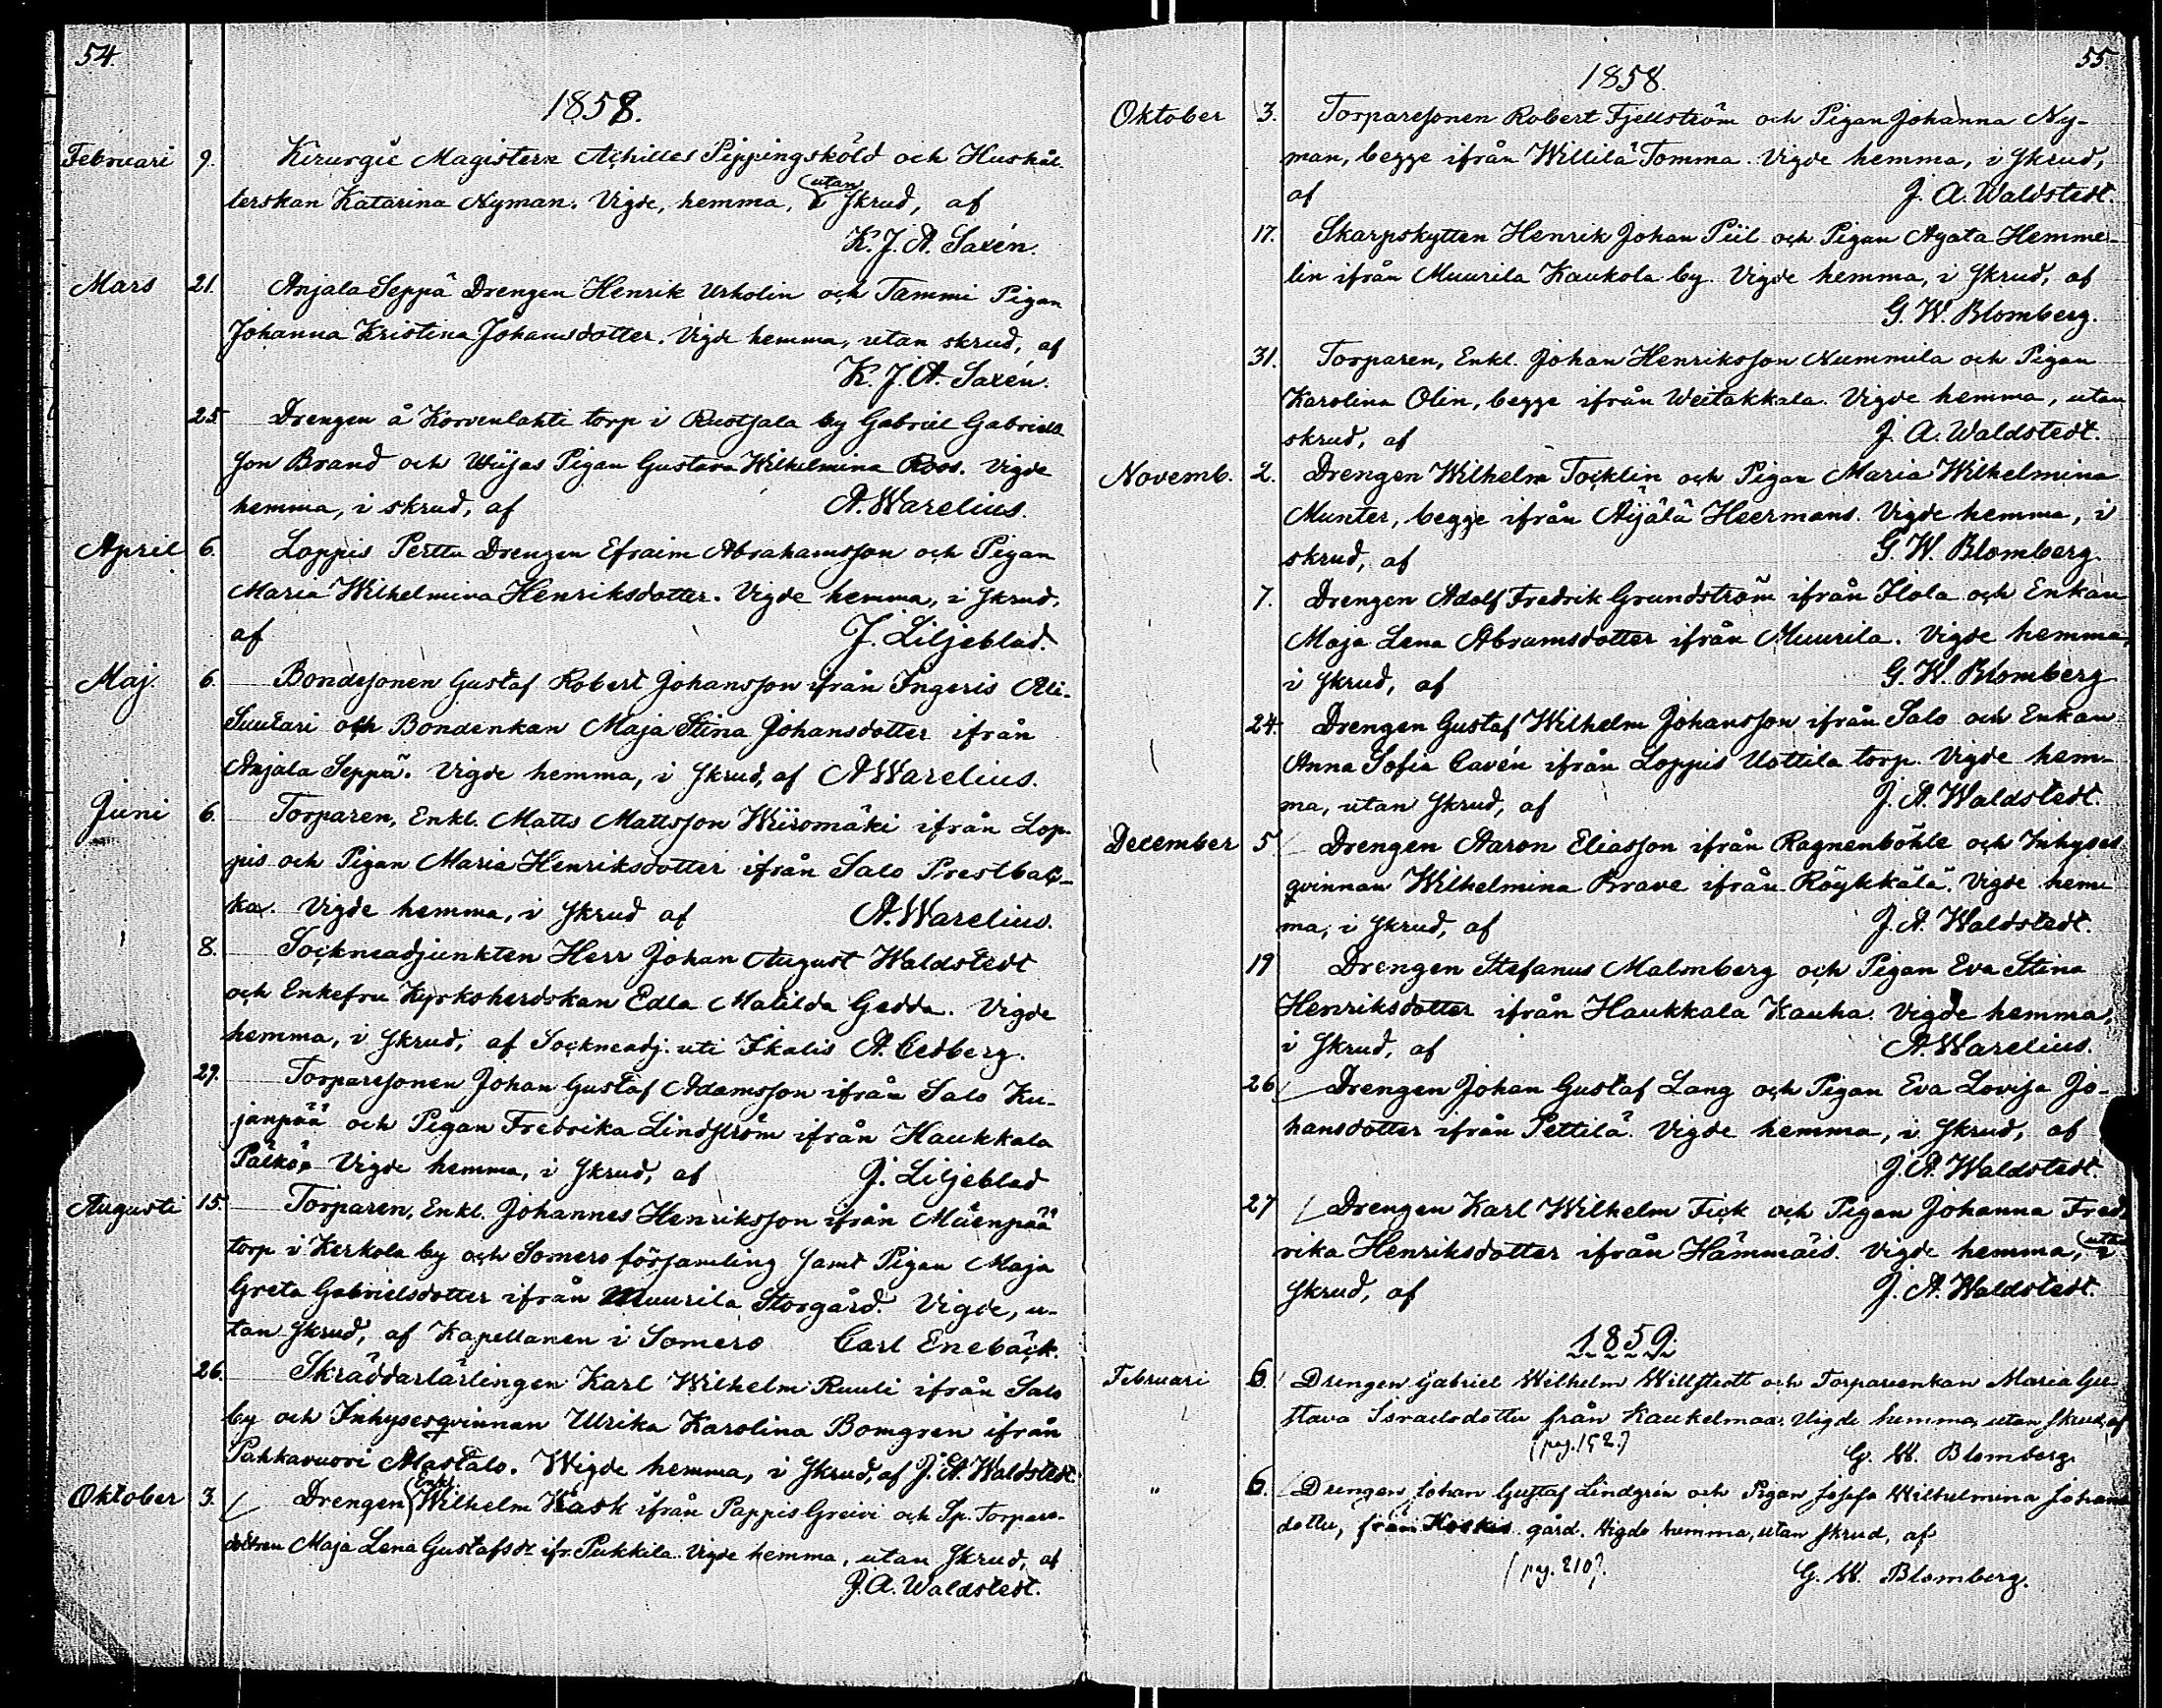 54.
1858.
Februari 9. Kirurgiæ Magistern Achilles Pippingsköld och Hushål-
lerskan Katarina Nyman. Vigde, hemma, utan i skrud, af
K. J. A. Saxén.
Mars 21. Anjala Seppä Drengen Henrik Urholin och Tammi Pigan
Johanna Kristina Johansdotter. Vigde hemma, utan skrud, af
K. J. A. Saxén.
25. Drengen å Korvenlahti torp i Rustjala by Gabriel Gabriels-
son Brand och Pigan Gustava Wilhelmina Roos. Vigde
hemma, i skrud, af A. Warelius.
April 6. Loppis Perttu Drengen Efraim Abrahamsson och Pigan
Maria Wilhelmina Henriksdotter. Vigde hemma, i skrud,
af J. Liljeblad.
Maj. 6. Bondesonen Gustaf Robert Johansson ifrån Ingeris Ali-
Suutari och Bondenkan Maja Stina Johansdotter ifrån
Anjala Seppä. Vigde hemma, i skrud, af A. Warelius.
Juni 6. Torparen, Enkl. Matts Mattsson Wiiromäki ifrån Lop-
pis och Pigan Maria Henriksdotter ifrån Salo Prestbac-
ka. Vigde hemma, i skrud af A. Warelius.
8. Sockneadjunkten Herr Johan August Waldstedt
och Enkefru Kyrkoherdskan Edla Matilda Gedda. Vigde
hemma, i skrud, af Sockneadj. uti Ikalis A. Cedberg.
29. Torparesonen Johan Gustaf Adamsson ifrån Salo Ku-
janpää och Pigan Fredrika Lindström ifrån Haukkala
Pälkö. Vigde hemma, i skrud, af J. Liljeblad
Augusti 15. Torparen, Enkl. Johannes Henriksson ifrån Mäenpää
torp i Kerkola by och Somero församling samt Pigan Maja
Greta Gabrielsdotter ifrån Muurila Storgård. Vigde, u-
tan skrud, af Kapellanen i Somero Carl Enebäck.
26. Skräddarlärlingen Karl Wilhelm Ruuli ifrån Salo
by och Inhysesqvinnan Ulrika Karolina Bomgren ifrån
Pahkavuori Mastalo. Wigde hemma, i skrud, af J. A. Waldstedt.
Oktober 3. Drengen Enkl. Wilhelm Kask ifrån Pappis Greivi och Sp. Torpare-
dottren Maja Lena Gustafsdr ifr. Pukkila. Vigde hemma, utan skrud, af
J. A. Waldstedt.
55.
1858.
Oktober 3. Torparesonen Robert Fjellström och Pigan Johanna Ny-
man, begge ifrån Willilä Tomma. Vigde hemma, i skrud,
af J. A. Waldstedt.
17. Skarpskytten Henrik Johan Piil och Pigan Agata Hemme-
lin ifrån Muurila Kaukola by. Vigde hemma, i skrud, af
G. W. Blomberg.
31. Torparen, Enkl. Johan Henriksson Nummila och Pigan
Karolina Olin, begge ifrån Weitakkala. Vigde hemma, utan
skrud, af J. A. Waldstedt.
Novemb. 2. Drengen Wilhelm Tocklin och Pigan Maria Wilhelmina
Munter, begge ifrån Äijälä Heermans. Vigde hemma, i
skrud, af G. W. Blomberg.
7. Drengen Adolf Fredrik Grundström ifrån Isola och Enkan
Maja Lena Abramsdotter ifrån Muurila. Vigde hemma,
i skrud, af G. W. Blomberg
24. Drengen Gustaf Wilhelm Johansson ifrån Salo och Enkan
Anna Sofia Cavén ifrån Loppis Uottila torp. Vigde hem-
ma, utan skrud, af J. A. Waldstedt.
December 5 Drengen Aaron Eliasson ifrån Ragnenböhle och Inhyses
qvinnan Wilhelmina Brave ifrån Röykkälä. Vigde hem-
ma, i skrud, af J. A. Waldstedt.
19 Drengen Stefanus Malmberg och Pigan Eva Stina
Henriksdotter ifrån Haukkala Kauha. Vigde hemma,
i skrud, af A. Warelius.
26 Drengen Johan Gustaf Lang och Pigan Eva Lovisa Jo-
hansdotter ifrån Pettilä. Vigde hemma, i skrud, af
J. A. Waldstedt.
27 Drengen Karl Wilhelm Fick och Pigan Johanna Fred-
rika Henriksdotter ifrån Hämmäis. Vigde hemma, utan i
skrud, af J. A. Waldstedt.
1859.
Februari 6. Drengen Gabriel Wilhelm Willstedt och Torpareenkan Maria Gu-
stava Israelsdotter från Kaukelmaa. Vigde hemma, utan skrud, af
(pag. 192.) G. W. Blomberg.
" 6. Drengen Johan Gustaf Lindgrén och Pigan Josefa Wilhelmina Johans
dotter, från Koskis gård. Vigde hemma, utan skrud, af
(pag. 210). G. W. Blomberg.